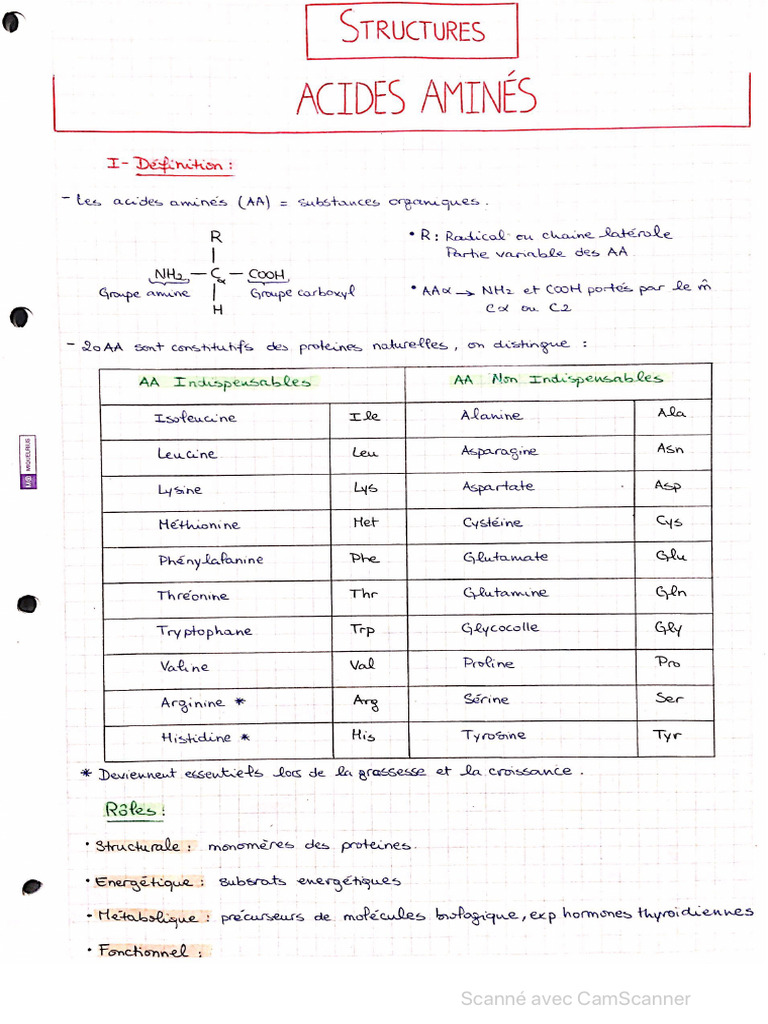 STRUCTURES
ACIDES AMINÉS
I- Définition :
- Les acides aminés (AA) = substances organiques.
R
NH2 — Cα — COOH
Groupe amine
Groupe carboxyl
H
• R : Radical ou chaine latérale
Partie variable des AA
• AAα → NH2 et COOH portés par le m̂
Cα ou C2
- 20 AA sont constitutifs des proteines naturelles, on distingue :
AA Indispensables AA Non Indispensables
Isoleucine Ile Alanine Ala
Leucine Leu Asparagine Asn
Lysine Lys Aspartate Asp
Méthionine Met Cystéine Cys
Phénylalanine Phe Glutamate Glu
Thréonine Thr Glutamine Gln
Tryptophane Trp Glycocolle Gly
Valine Val Proline Pro
Arginine * Arg Sérine Ser
Histidine * His Tyrosine Tyr
* Deviennent essentiels lors de la grossesse et la croissance.
Rôles :
• Structurale : monomères des proteines.
• Energétique : substrats energétiques
• Métabolique : précurseurs de molécules biologique, exp hormones thyroidiennes
• Fonctionnel :
MIQUELRIUS
Scanné avec CamScanner